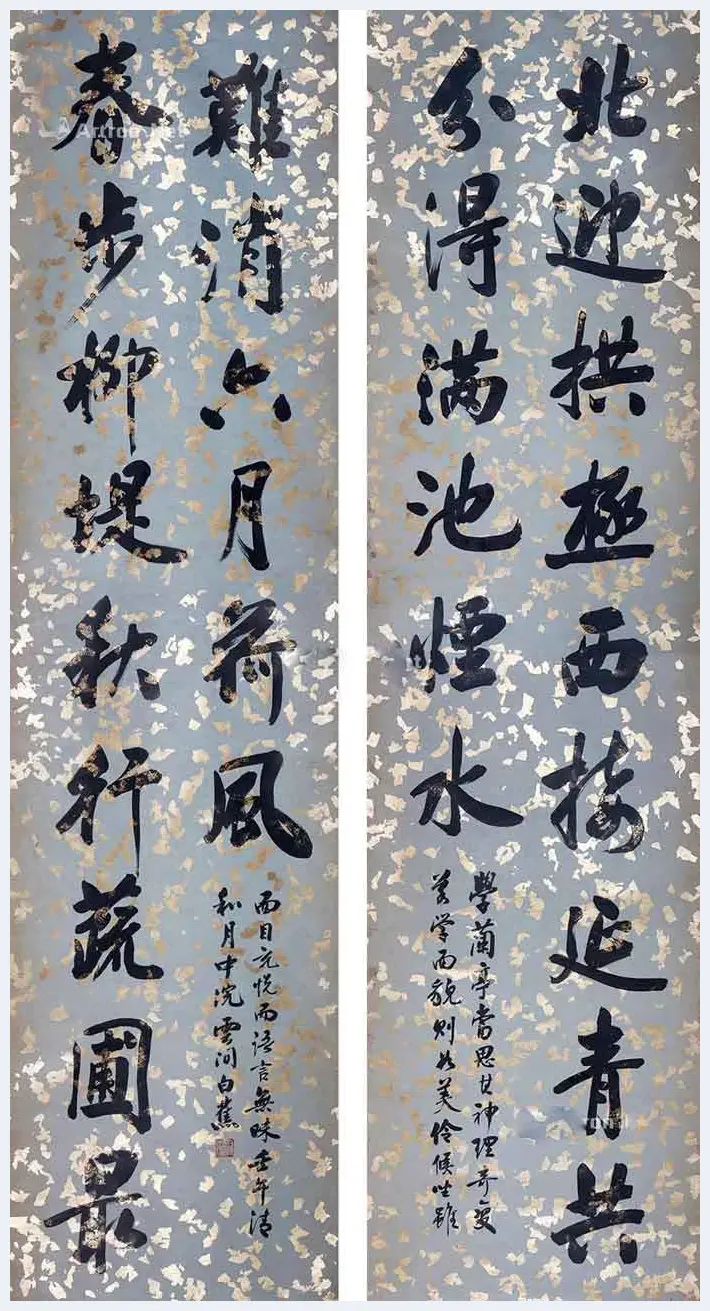 北迎拱極西接延青共
分得滿池煙水
學蘭亭當思其神理奇變
若学面貌则如美伶候坐雖
春步柳堤秋行蔬圃最
難消六月荷風
面目充悦而語言無味壬午清
和月中浣雲間白蕉
Artron.Net